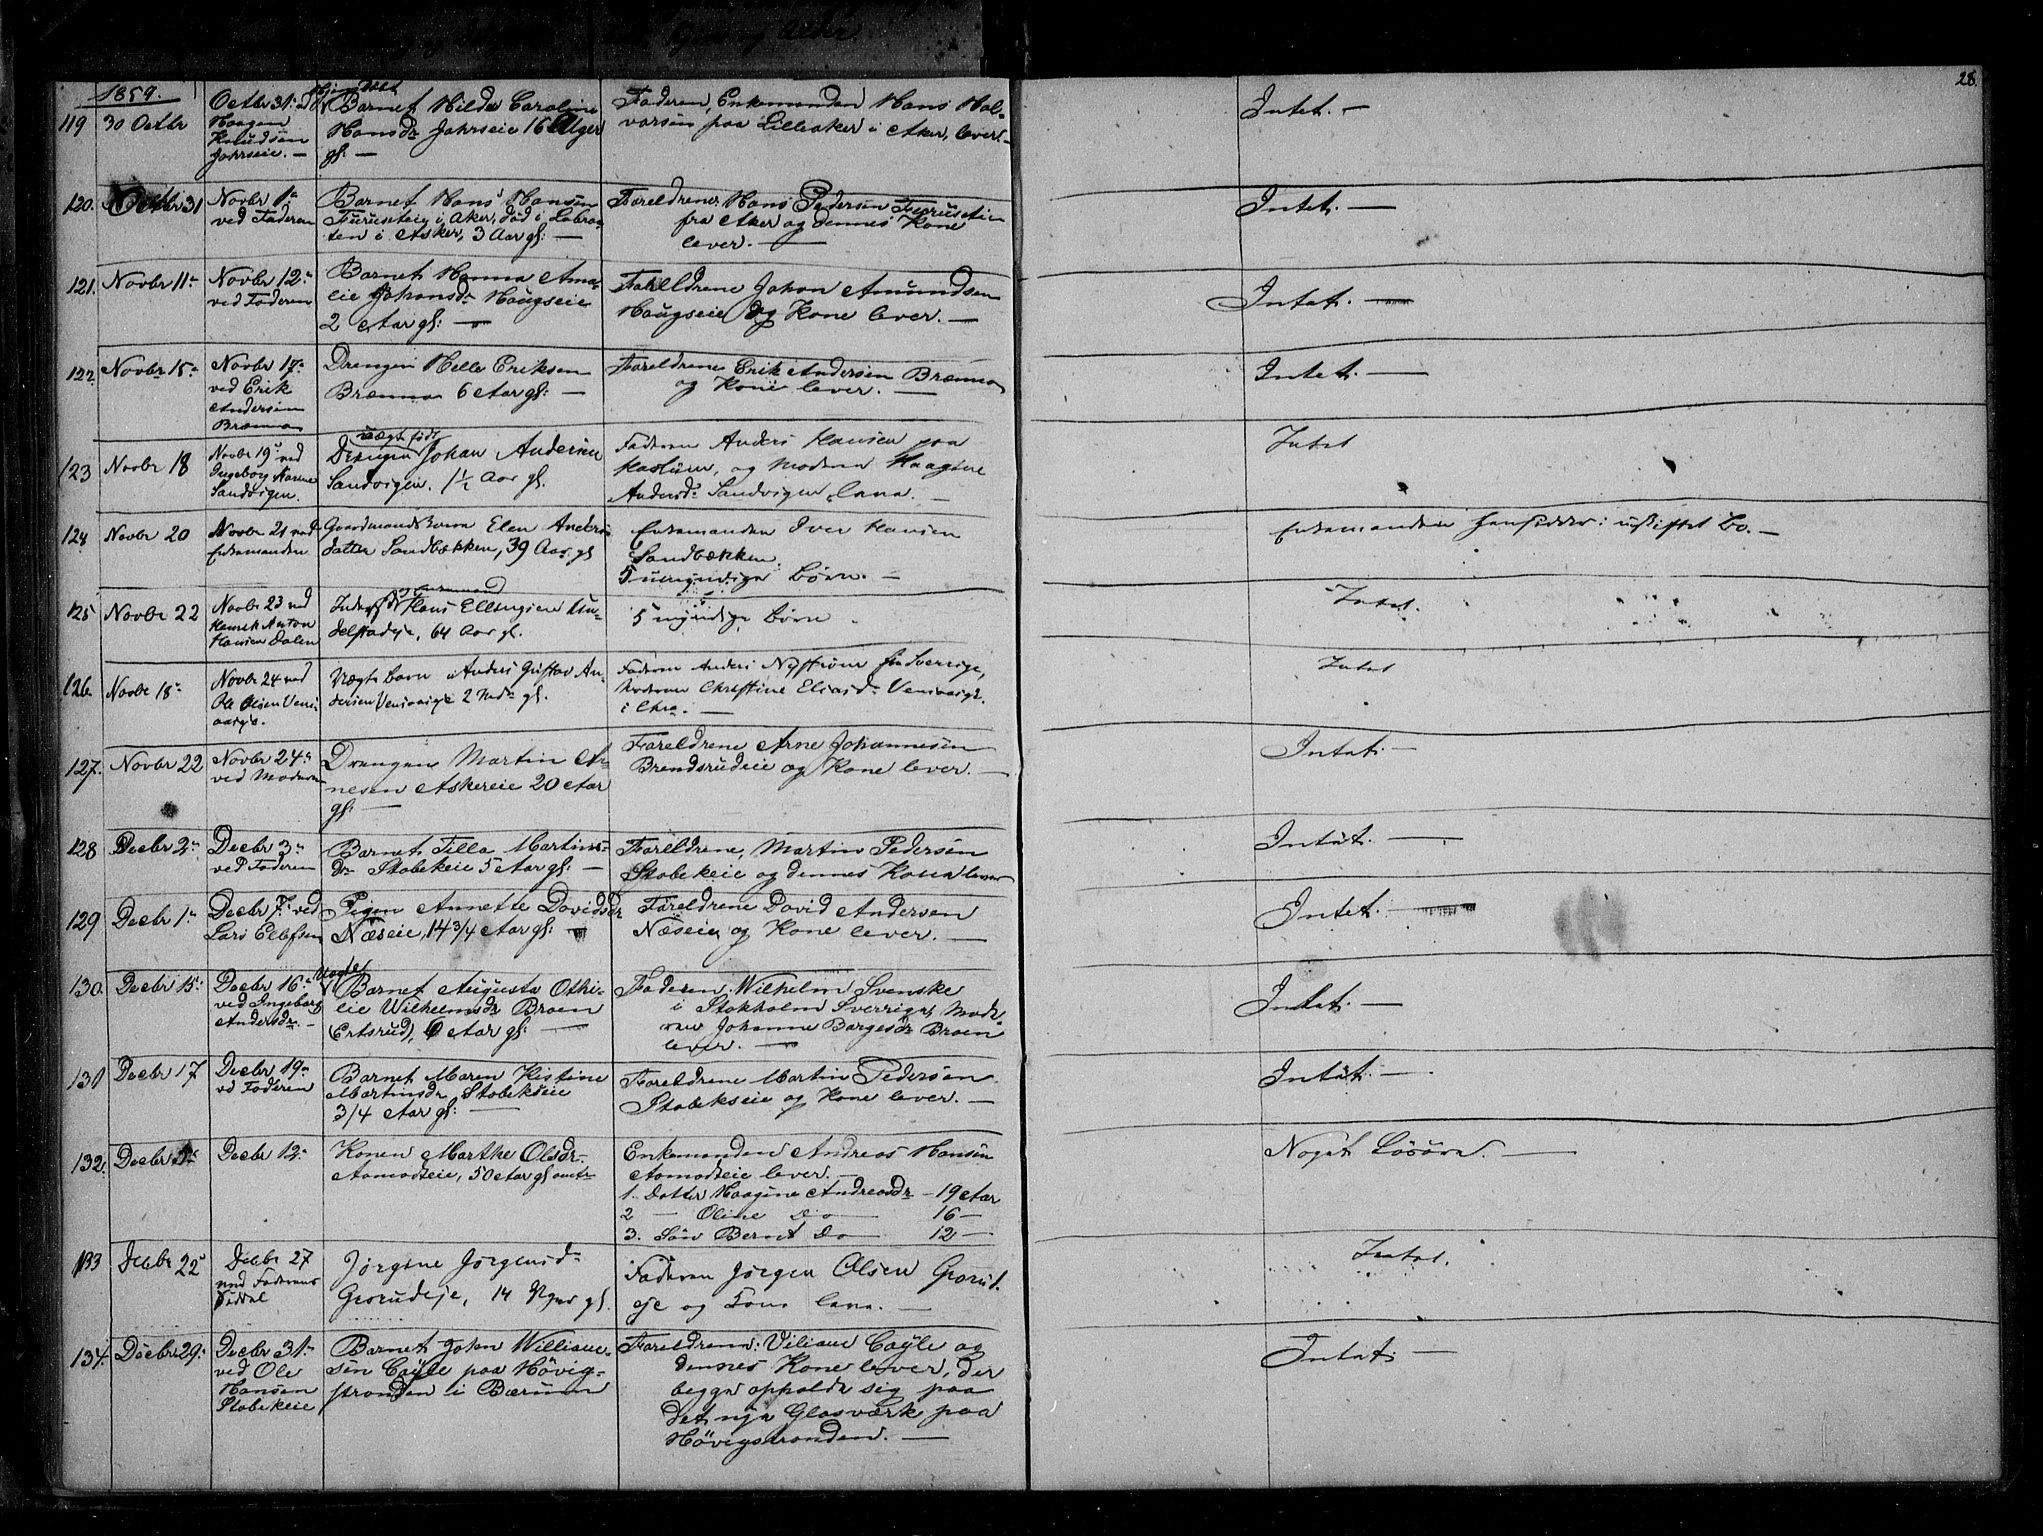 28.
1859.
119 30 Octbr
Octbr 31:
Haagen
Knudsen
Jahrseie. —
Barnet Hilda Caroline
Hansdr Jahrseie 16 Uger
gl: —
Faderen, Enkemanden Hans Hal-
varsen paa Lilleaker i Aker, lever. —
Intet. —
120. Octbr 31
Novbr 1:
ved Faderen
Barnet Hans Hansen
Furusteig i Aker, død i Labraa-
ten i Asker, 3 Aar gl: —
Forældrene Hans Pedersen
fra Aker og dennes Kone
lever. —
Intet. —
121. Novbr 11:
Novbr 12:
ved Faderen
Barnet Hanna Ama-
lie Johansdr Haugseie
2 Aar gl: —
Forældrene Johan Amundsen
Haugseie og Kone lever. —
Intet. —
122. Novbr 15:
Novbr 17:
ved Erik
Andersen
Brænna
Drengen Helle Eriksen
Brænna 6 Aar gl: —
Forældrene Erik Andersen Brænna
og Kone lever. —
Intet. —
123 Novbr 18
Novbr 19: ved
Ingeborg Karine
Sandvigen.
uægte født
Drengen Johan Andersen
Sandvigen. 1½ Aar gl.
Faderen Anders Hansen paa
Haslum, og Moderen Haagine
Andersdr Sandvigen, leve. —
Intet
124 Novbr 20
Novbr 21 ved
Enkemanden
Gaardmandskone Elen Anders-
datter Sandbækken, 39 Aar gl
Enkemanden Iver Hansen
Sandbækken.
5 umyndige Børn. —
Enkemanden hensidder i uskiftet Bo. —
125 Novbr 22
Novbr 23 ved
Henrik Anton
Hansen Dalen
Hans Ellingsen
64 Aar gl.
5 myndige Børn
Intet.
126. Novbr 18:
Novbr 24 ved
Ole Olsen
Uægte Barn Anders Gustav An-
dersen 2 Mdr gl.
Faderen Anders Nystrøm fra Sverrige,
Moderen Christine Eliasdr
i Chra. —
Intet
127. Novbr 22
Novbr 24:
ved Moderen
Drengen Martin Ar-
nesen Askereie 20 Aar
gl: —
Forældrene Arne Johannesen
Brendsrudeie og Kone lever. —
Intet. —
128 Decbr 2:
Decbr 3:
ved Faderen
Barnet Tilla Martins-
dr Stabekeie 5 Aar gl: —
Forældrene, Martin Pedersen
Stabekeie og dennes Kone lever
Intet. —
129 Decbr 1:
Decbr 7: ved
Lars Ellefsen
Pigen Annette Davidsdr
Næseie, 14 3/4 Aar gl: —
Forældrene David Andersen
Næseie og Kone lever. —
Intet. —
130. Decbr 15:
Decbr 16:
ved Ingeborg
Andersdr. —
Uægte
Barnet Augusta Othi-
lie Wilhelmsdr Braen
(Ertsrud), 6 Aar gl: —
Faderen Wilhelm Svenske
i Stokholm Sverrige, Mode-
ren Johanne Børgesdr Braen
lever. —
Intet. —
131 Decbr 17
Decbr 19:
vd Faderen
Barnet Maren Kistine
Martinsdr Stabekeie
3/4 Aar gl: —
Forældrene Martin Pedersen
Stabekseie og Kone lever. —
Intet. —
132. Decbr 5:
Decbr 12:
Konen Marthe Olsdr
Aamodteie, 50 Aar gl omtr
Enkemanden Andreas Hansen
Aamodteie lever. —
1. Datter Haagine Andreasdr — 19 Aar
2 — Oline do — 16 —
3. Søn Bernt do — 12 —
Noget Løsøre. —
133 Decbr 22
Decbr 27
ved Faderens
Jørgine Jørgensdr
Grorudeje, 14 Uger gl.
Faderen Jørgen Olsen Grorud-
eje og Kone leve. —
Intet.
134. Decbr 29:
Decbr 31:
ved Ole
Hansen
Stabekeie
Barnet John William-
sen Coyle paa Høvig-
stranden i Bærum
Forældrene Viliam Coyle og
dennes Kone lever, der
begge opholde sig paa
det nye Glasværk paa
Høvigstranden. —
Intet. —